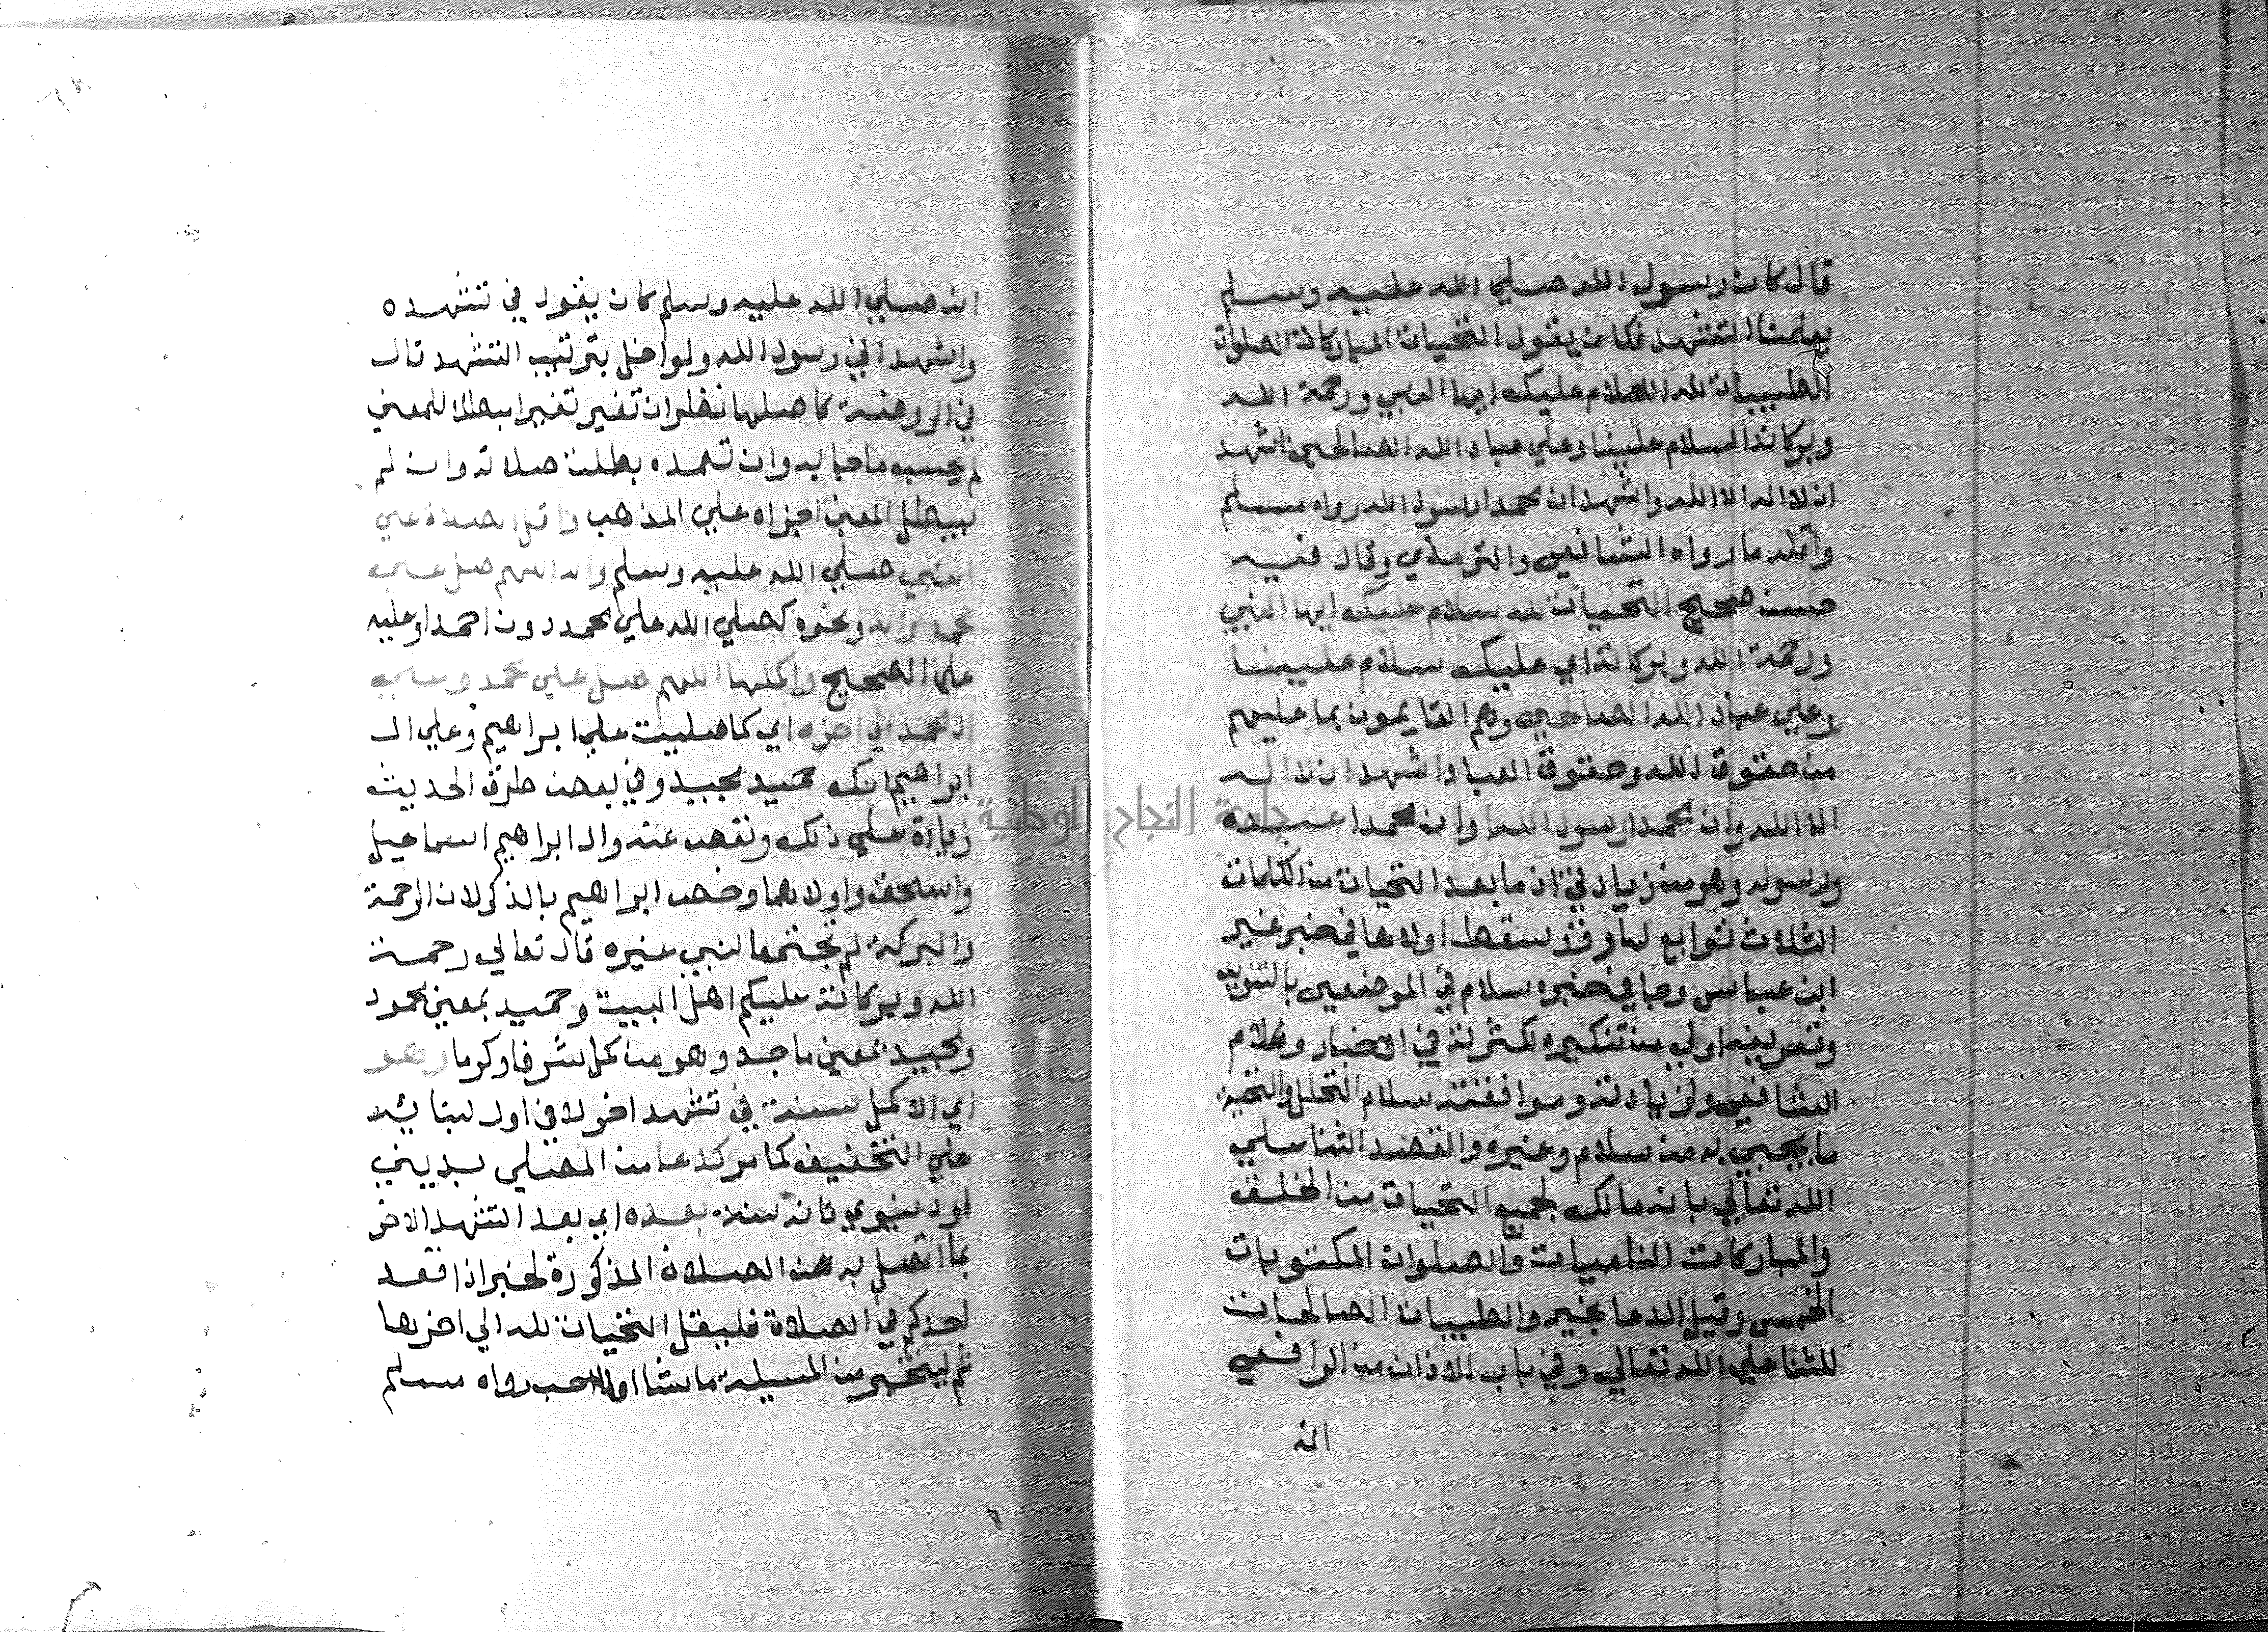 قال كان رسول الله صلي الله عليه وسلم
يعلمنا التشهد فكان يقول التحيات المباركات الصلوات
الطيبات لله السلام عليك ايها النبي ورحمة الله
وبركاته السلام علينا وعلي عباد الله الصالحين اشهد
ان لا اله الا الله واشهد ان محمدا رسول الله رواه مسلم
واقله ما رواه الشافعي والترمذي وقال فيه
حسن صحيح التحيات لله سلام عليك ايها النبي
ورحمة الله وبركاته اي عليك سلام علينا
وعلي عباد الله الصالحين وهم القايمون بما عليهم
من حقوق الله وحقوق العباد اشهد ان لا اله
الا الله وان محمدا رسول الله او ان محمدا عبده
ورسوله وهو من زيادتي اذ ما بعد التحيات من الكلمات
الثلاث توابع لها وقد سقط اولاها في خبر غير
ابن عباس وجا في خبره سلام في الموضعين بالتنوين
وتعريفه اولي من تنكيره لكثرته في الاخبار وكلام
الشافعي ولزيادته وموافقته سلام التحلل والتحية
ما يحيي به من سلام وغيره والقصد الثنا علي
الله تعالي بانه مالك لجميع التحيات من الخلق
والمباركات الناميات والصلوات المكتوبات
الخمس وقيل الدعا بخير والطيبات الصالحات
للثنا علي الله تعالي وفي باب الاذان من الرافعي
انه
انه صلي الله عليه وسلم كان يقول في تشهده
واشهد اني رسول الله ولو اخل بترتيب التشهد قال
في الروضة كاصلها نظر ان تغير تغيرا مبطلا للمعني
لم يحسب ما جا به وان تعمده بطلت صلاته وان لم
يبطل المعني اجزاه علي المذهب واقل الصلاة علي
النبي صلي الله عليه وسلم واله اللهم صل علي
محمد واله ونحوه كصلي الله علي محمد دون احمد او عليه
علي الصحيح واكملها اللهم صل علي محمد وعلي
ال محمد الي اخره اي كما صليت علي ابراهيم وعلي ال
ابراهيم انك حميد مجيد وفي بعض طرق الحديث
زيادة علي ذلك ونقص عنه وال ابراهيم اسماعيل
واسحق واولادهما وخص ابراهيم بالذكر لان الرحمة
والبركة لم تجتمعا لنبي غيره قال تعالي رحمت
الله وبركاته عليكم اهل البيت وحميد بمعني محمود
ومجيد بمعني ماجد وهو من كمل شرفا وكرما وهو
اي الاكمل سنة في تشهد اخر لا في اول لبنائه
علي التخفيف كما مر كدعا من المصلي بديني
او دنيوي فانه سنة بعده اي بعد التشهد الاخر
بما اتصل به من الصلاة المذكورة لخبر اذا قعد
احدكم في الصلاة فليقل التحيات لله الي اخرها
ثم ليتخير من المسيلة ما شا او احب رواه مسلم
جامعة النجاح الوطنية